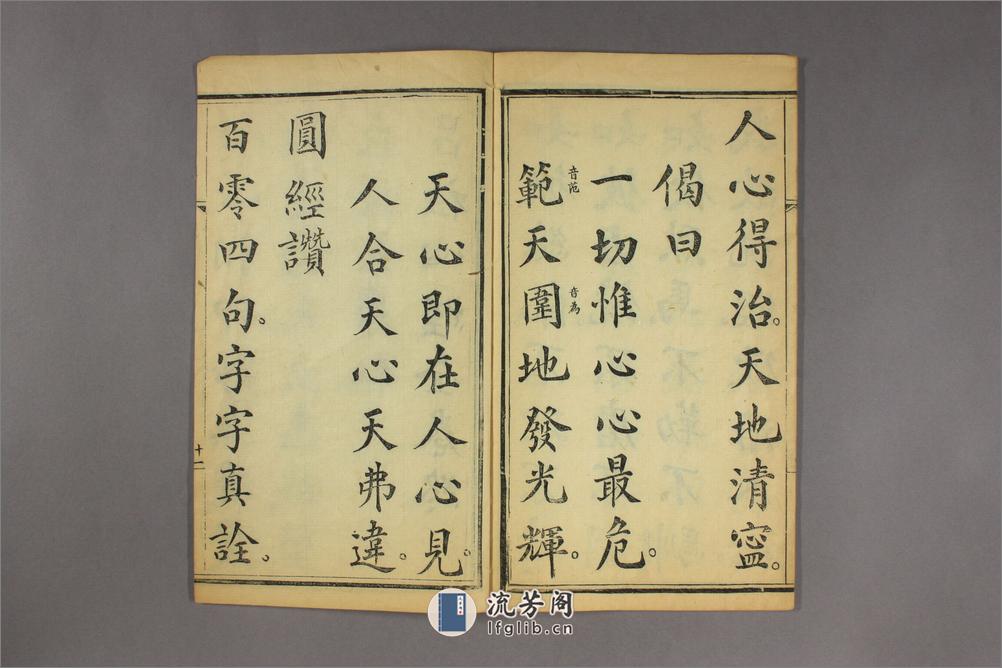 人心得治。天地清寍。
偈曰
一切惟心心最危。
範音范天圍音為地發光輝。
天心即在人心見。
人合天心天弗違。
圓經讚
百零四句。字字真詮。
十一
流芳阁
lfglib.cn